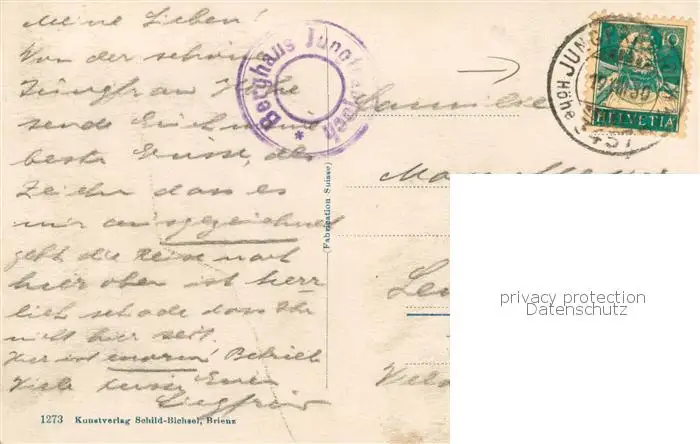 Meine Lieben!
Von der schönen
Jungfrau Höhe
sende Euch meine
beste Grüsse, als
Zeichen dass es
mir ausgezeichnet
geht die Reise nach
hier oben ist herr
lich schade dass Ihr
nicht hier seit.
Hier ist enorm Betrieb
Viele Grüsse Euer
Siegfried
Berghaus Jungfraujoch *
→
HELVETIA
10
3457
Familie
(Fabrication Suisse)
privacy protection
Datenschutz
1273 Kunstverlag Schild-Bichsel, Brienz